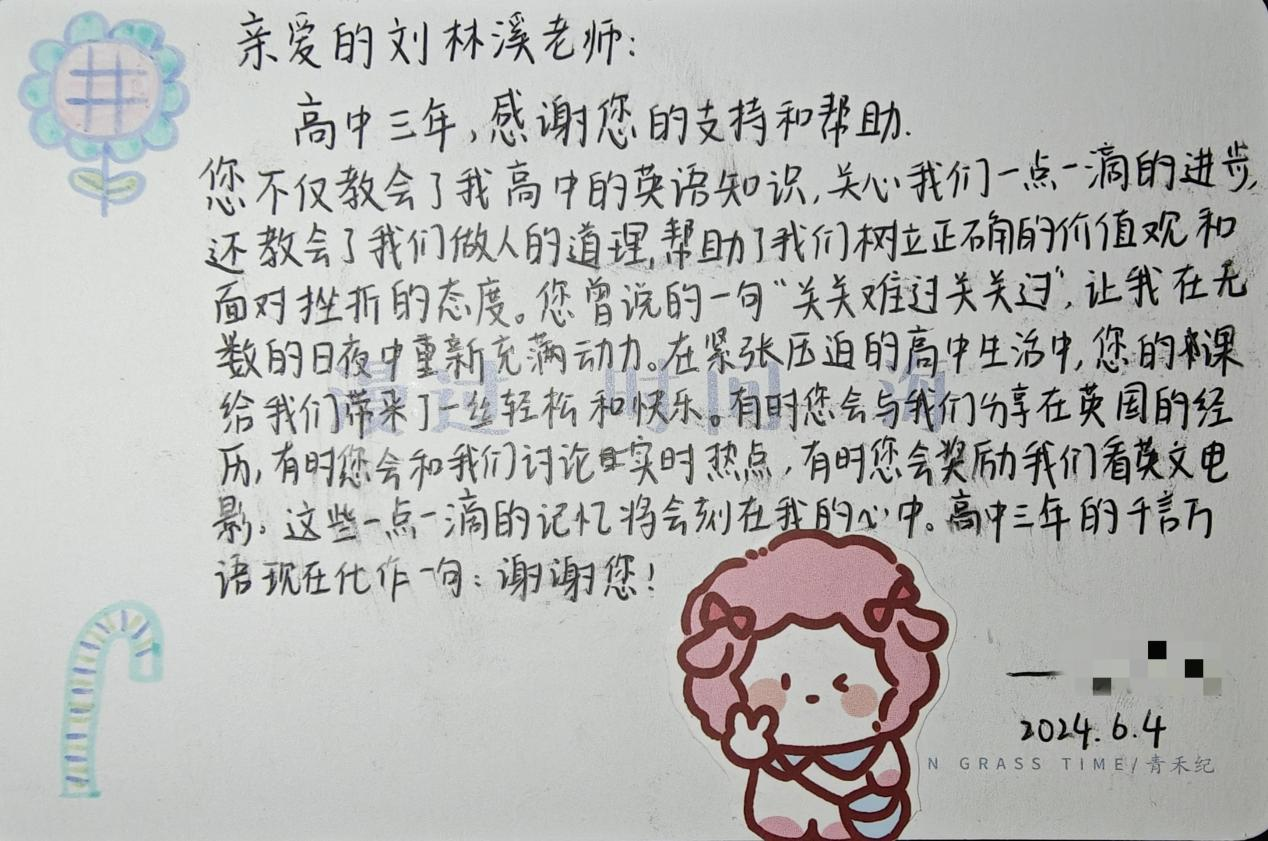 亲爱的刘林溪老师:
高中三年,感谢您的支持和帮助.
您不仅教会了我高中的英语知识,关心我们一点一滴的进步,
还教会了我们做人的道理,帮助了我们树立正确的价值观和
面对挫折的态度。您曾说的一句“关关难过关关过”,让我在无
数的日夜中重新充满动力。在紧张压迫的高中生活中,您的课
给我们带来了一丝轻松和快乐。有时您会与我们分享在英国的经
历,有时您会和我们讨论实时热点,有时您会奖励我们看英文电
影。这些一点一滴的记忆将会刻在我的心中。高中三年的千言万
语现在化作一句:谢谢您!
漫过 时间 海
2024.6.4
N GRASS TIME/青禾纪